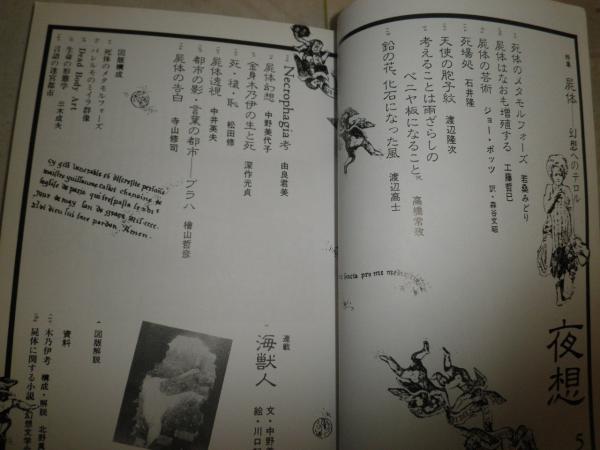 特集 屍体――幻想へのテロル
死体のメタモルフォーズ 若桑みどり
屍体はなおも増殖する 工藤哲巳
屍体の芸術 ジョー・ボッツ 訳・森谷文昭
死場処 石井隆
天使の胞子紋 渡辺隆次
考えることは雨ざらしの
ベニヤ板になること 高橋常政
鉛の花、化石になった風 渡辺高士
夜想
5
Necrophagia考 由良君美
屍体幻想 中野美代子
金身木乃伊の生と死 深作光貞
死・穢・恥 松田修
屍体透視 中井英夫
都市の影・言葉の都市――プラハ 檜山哲彦
屍体の告白 寺山修司
図版構成
死体のメタモルフォーズ
パレルモのミイラ群像
Dead Body Art
生命の形態学 三木成夫
言語の迷宮都市
連載
海獣人
文・中野美
絵・川口
図版解説
資料
木乃伊考 構成・解説 北野真
屍体に関する小説